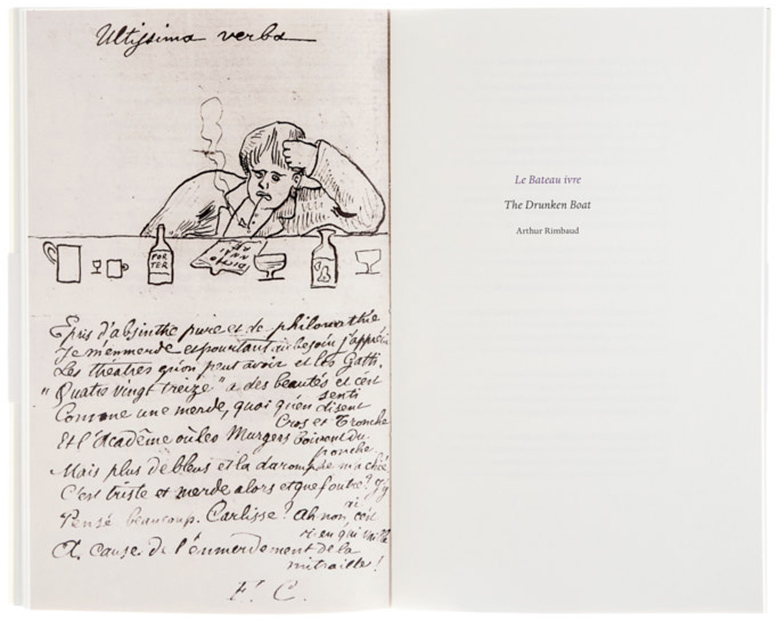 Ultissima verba
POR
TER
Epris d'absinthe pure et de philomathie
Je m'emmerde et pourtant au besoin j'appréci
Les théâtres qu'on peut avoir et les Gatti.
"Quatre vingt treize" a des beautés et c'est
senti
Comme une merde, quoi qu'en disent
Cros et Tronche
Et l'Acadême où les Murgers boivent du
ponche
Mais plus de bleus et la daromphe m'a chié
C'est triste et merde alors et que foutre? J'y
ai
Pensé beaucoup. Carlisse? Ah non, c'est
rien qui vaille
A cause de l'emmerdement de la
mitraille!
F. C.
Le Bateau ivre
The Drunken Boat
Arthur Rimbaud